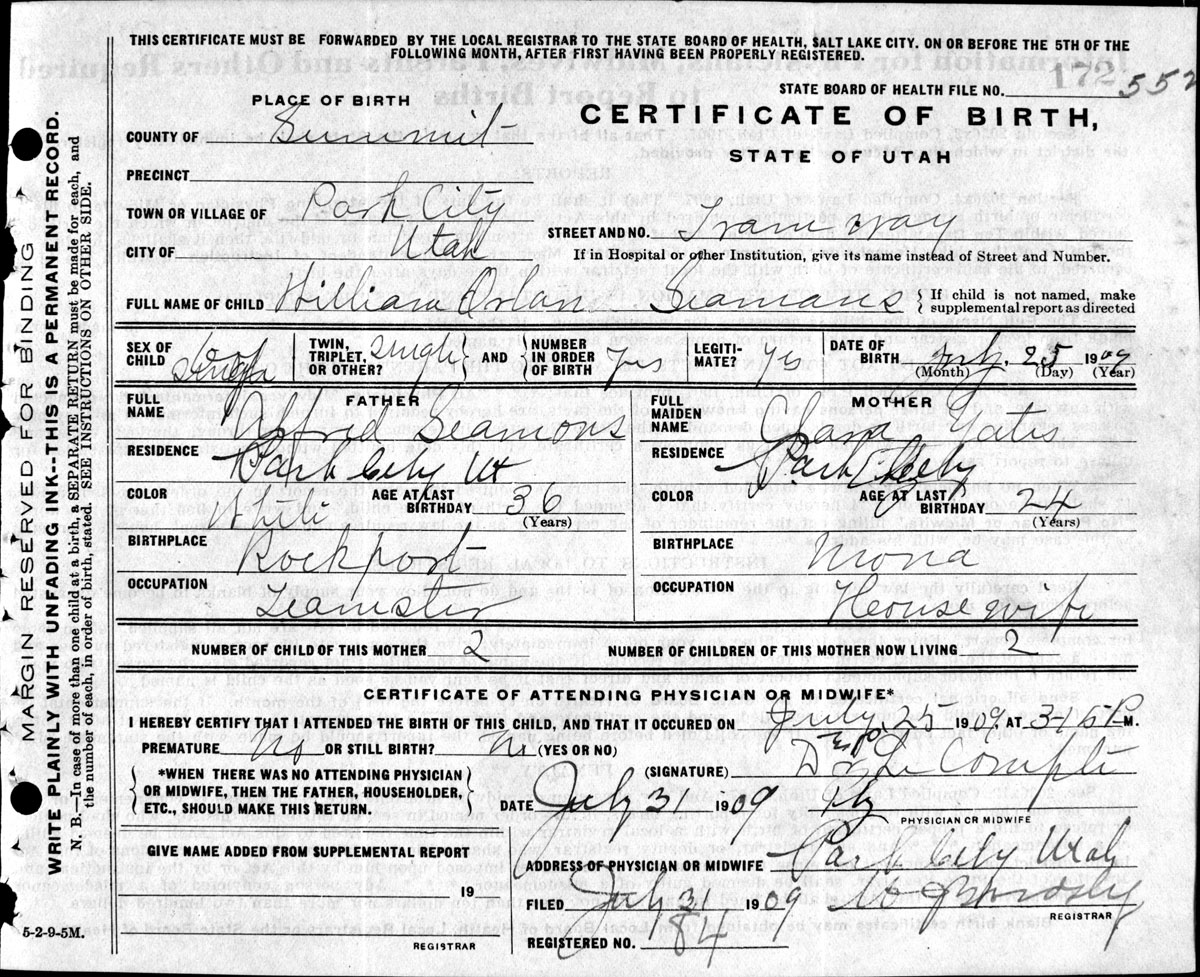 THIS CERTIFICATE MUST BE FORWARDED BY THE LOCAL REGISTRAR TO THE STATE BOARD OF HEALTH, SALT LAKE CITY. ON OR BEFORE THE 5TH OF THE
FOLLOWING MONTH, AFTER FIRST HAVING BEEN PROPERLY REGISTERED.
STATE BOARD OF HEALTH FILE NO. 172 552
PLACE OF BIRTH
CERTIFICATE OF BIRTH,
STATE OF UTAH
COUNTY OF Summit
PRECINCT
TOWN OR VILLAGE OF Park City
STREET AND NO. Tramway
CITY OF Utah
If in Hospital or other Institution, give its name instead of Street and Number.
FULL NAME OF CHILD William Orlan Seamans { If child is not named, make
supplemental report as directed
SEX OF CHILD
TWIN, TRIPLET, OR OTHER? Single AND { NUMBER IN ORDER OF BIRTH Yes
LEGITI-MATE? Yes
DATE OF BIRTH July 25 1909
(Month) (Day) (Year)
FATHER
FULL NAME Alfred Seamons
RESIDENCE Park City Ut
COLOR White AGE AT LAST BIRTHDAY 36
(Years)
BIRTHPLACE Rockport
OCCUPATION Teamster
MOTHER
FULL MAIDEN NAME Clara Yates
RESIDENCE Park City
COLOR AGE AT LAST BIRTHDAY 24
(Years)
BIRTHPLACE Mona
OCCUPATION House wife
NUMBER OF CHILD OF THIS MOTHER 2 NUMBER OF CHILDREN OF THIS MOTHER NOW LIVING 2
CERTIFICATE OF ATTENDING PHYSICIAN OR MIDWIFE*
I HEREBY CERTIFY THAT I ATTENDED THE BIRTH OF THIS CHILD, AND THAT IT OCCURED ON July 25 1909, AT 3-15 P M.
PREMATURE No OR STILL BIRTH? No (YES OR NO)
{ *WHEN THERE WAS NO ATTENDING PHYSICIAN
OR MIDWIFE, THEN THE FATHER, HOUSEHOLDER,
ETC., SHOULD MAKE THIS RETURN. }
(SIGNATURE) Le Compte
DATE July 31 1909
PHYSICIAN OR MIDWIFE
GIVE NAME ADDED FROM SUPPLEMENTAL REPORT
19
REGISTRAR
ADDRESS OF PHYSICIAN OR MIDWIFE Park City Utah
FILED July 31 1909
REGISTRAR
REGISTERED NO. 184
5-2-9-5M.
MARGIN RESERVED FOR BINDING
WRITE PLAINLY WITH UNFADING INK---THIS IS A PERMANENT RECORD.
N. B.—In case of more than one child at a birth, a SEPARATE RETURN must be made for each, and
the number of each, in order of birth, stated. SEE INSTRUCTIONS ON OTHER SIDE.